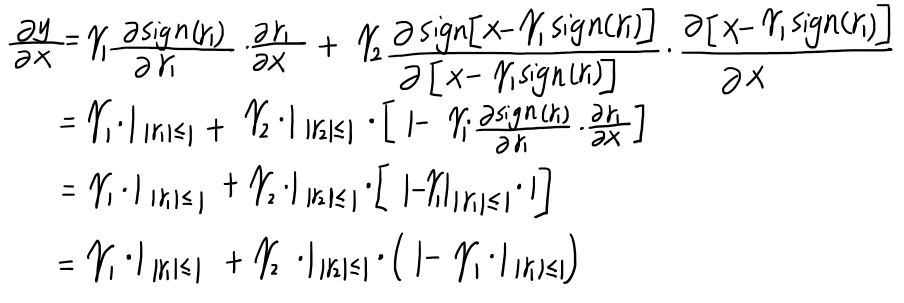 ∂y/∂x = γ₁ ∂sign(r₁)/∂r₁ · ∂r₁/∂x + γ₂ ∂sign[x-γ₁sign(r₁)]/∂[x-γ₁sign(r₁)] · ∂[x-γ₁sign(r₁)]/∂x
= γ₁·1_{|r₁|≤1} + γ₂·1_{|r₂|≤1}·[1-γ₁·∂sign(r₁)/∂r₁·∂r₁/∂x]
= γ₁·1_{|r₁|≤1} + γ₂·1_{|r₂|≤1}·[1-γ₁1_{|r₁|≤1}·1]
= γ₁·1_{|r₁|≤1} + γ₂·1_{|r₂|≤1}·(1-γ₁·1_{|r₁|≤1})